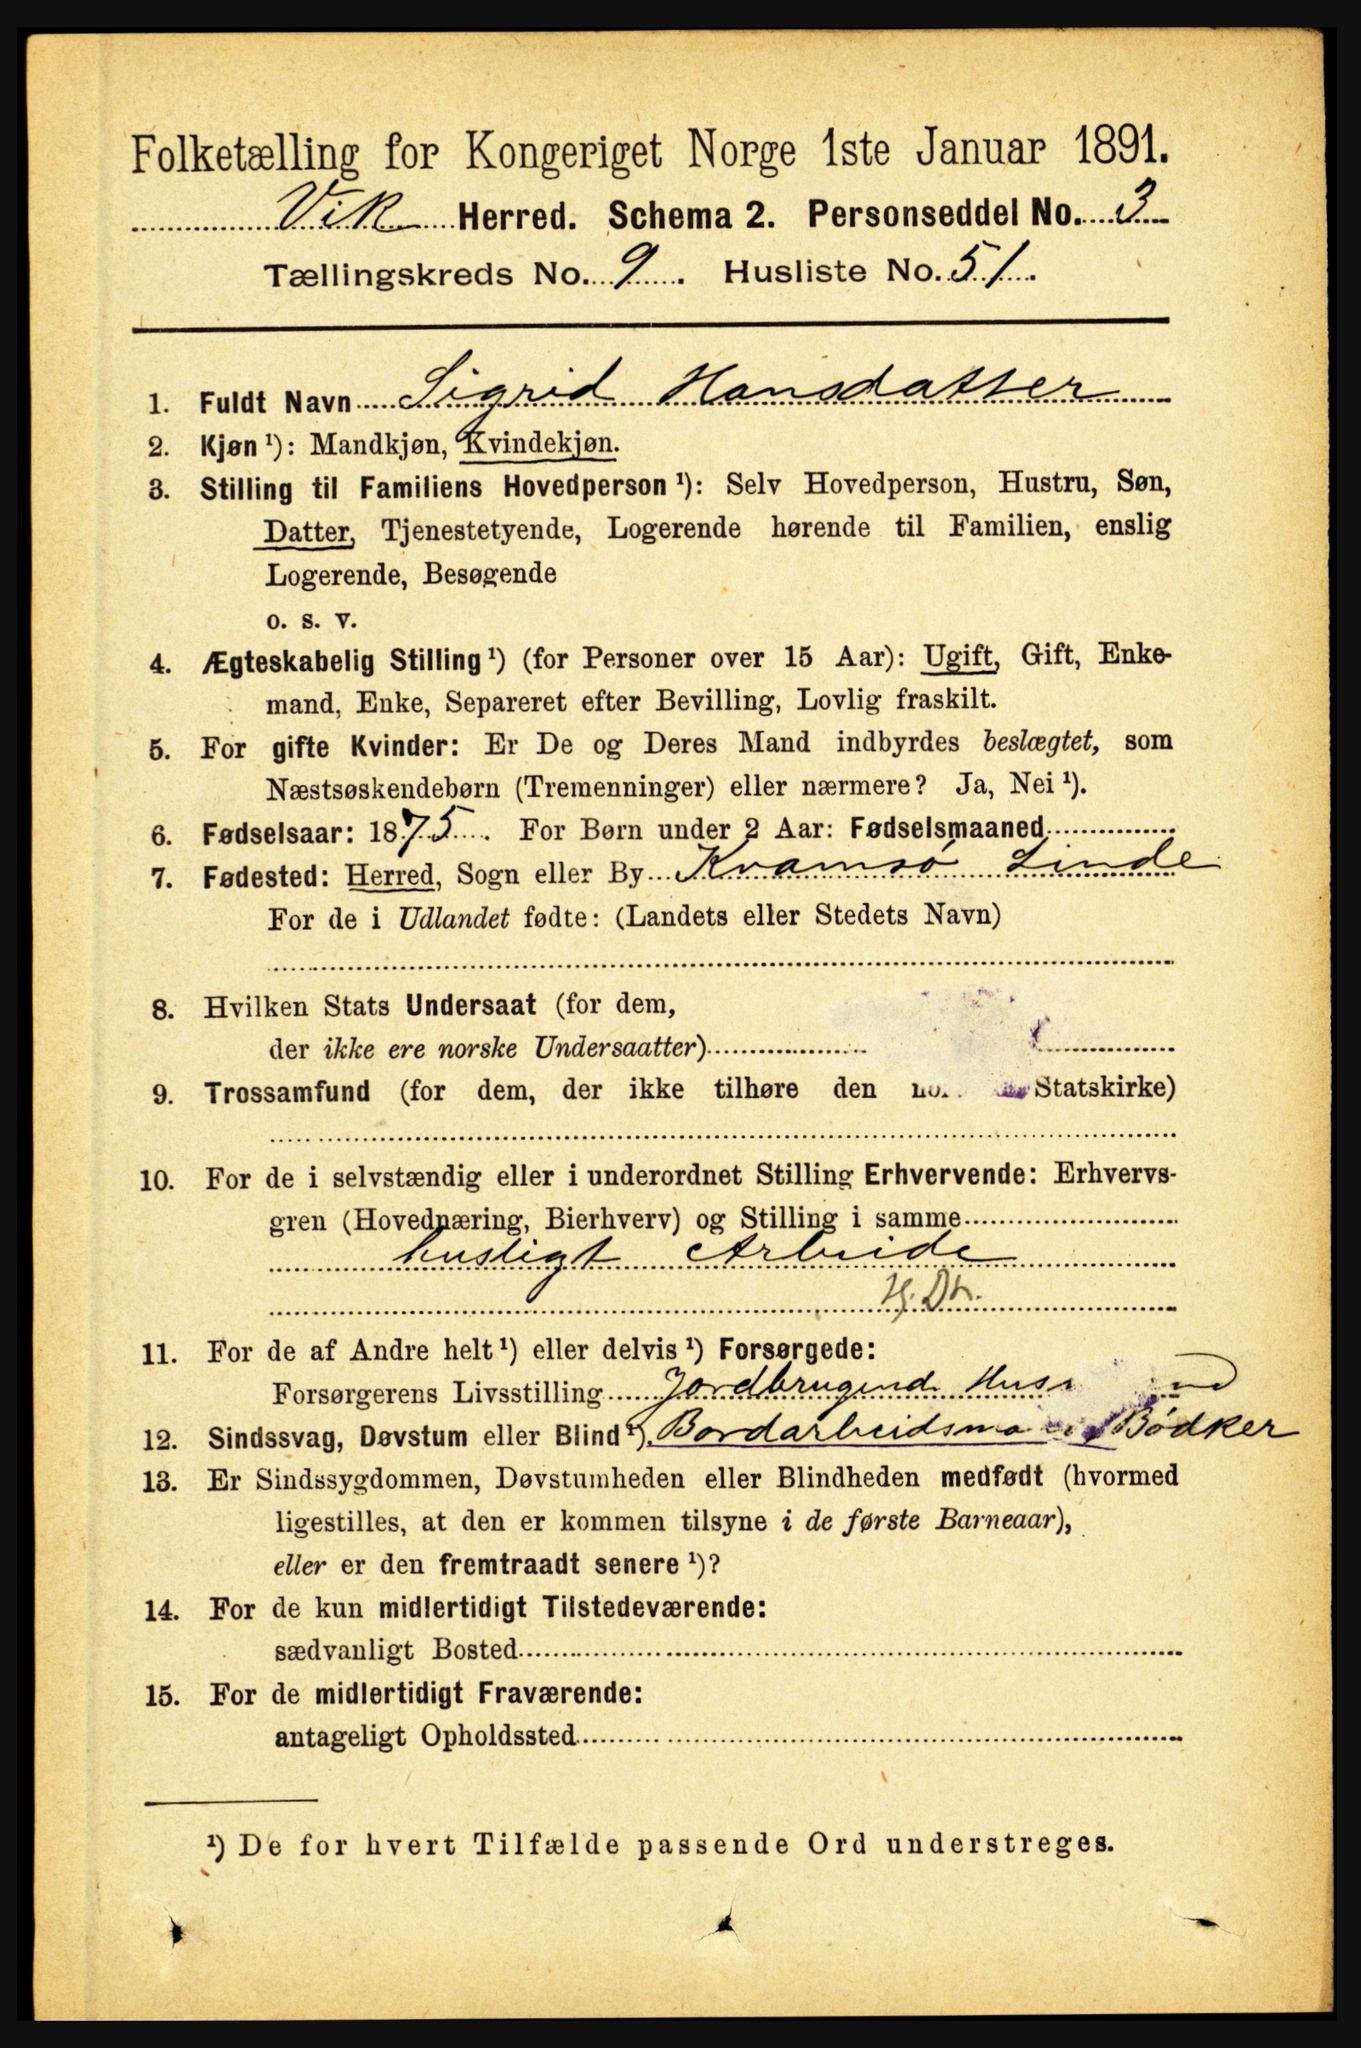 Folketælling for Kongeriget Norge 1ste Januar 1891.
Vik Herred. Schema 2. Personseddel No. 3
Tællingskreds No. 9. Husliste No. 51.
1. Fuldt Navn Sigrid Hansdatter
2. Kjøn ¹): Mandkjøn, Kvindekjøn.
3. Stilling til Familiens Hovedperson ¹): Selv Hovedperson, Hustru, Søn,
Datter, Tjenestetyende, Logerende hørende til Familien, enslig
Logerende, Besøgende
o. s. v.
4. Ægteskabelig Stilling ¹) (for Personer over 15 Aar): Ugift, Gift, Enke-
mand, Enke, Separeret efter Bevilling, Lovlig fraskilt.
5. For gifte Kvinder: Er De og Deres Mand indbyrdes beslægtet, som
Næstsøskendebørn (Tremenninger) eller nærmere? Ja, Nei ¹).
6. Fødselsaar: 1875. For Børn under 2 Aar: Fødselsmaaned
7. Fødested: Herred, Sogn eller By Kvamsö Linde
For de i Udlandet fødte: (Landets eller Stedets Navn)
8. Hvilken Stats Undersaat (for dem,
der ikke ere norske Undersaatter)
9. Trossamfund (for dem, der ikke tilhøre den Statskirke)
10. For de i selvstændig eller i underordnet Stilling Erhvervende: Erhvervs-
gren (Hovednæring, Bierhverv) og Stilling i samme
husligt Arbeide
Hj. Dtr.
11. For de af Andre helt ¹) eller delvis ¹) Forsørgede:
Forsørgerens Livsstilling Jordbrugende
12. Sindssvag, Døvstum eller Blind ¹). Bødker
13. Er Sindssygdommen, Døvstumheden eller Blindheden medfødt (hvormed
ligestilles, at den er kommen tilsyne i de første Barneaar),
eller er den fremtraadt senere ¹)?
14. For de kun midlertidigt Tilstedeværende:
sædvanligt Bosted
15. For de midlertidigt Fraværende:
antageligt Opholdssted
¹) De for hvert Tilfælde passende Ord understreges.